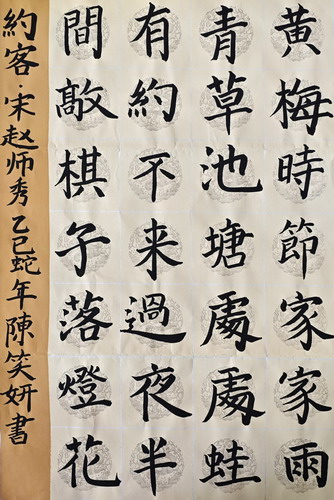 黄梅時節家家雨
青草池塘處處蛙
有約不来過夜半
間敲棋子落燈花
約客·宋赵师秀乙巳蛇年陳笑妍書